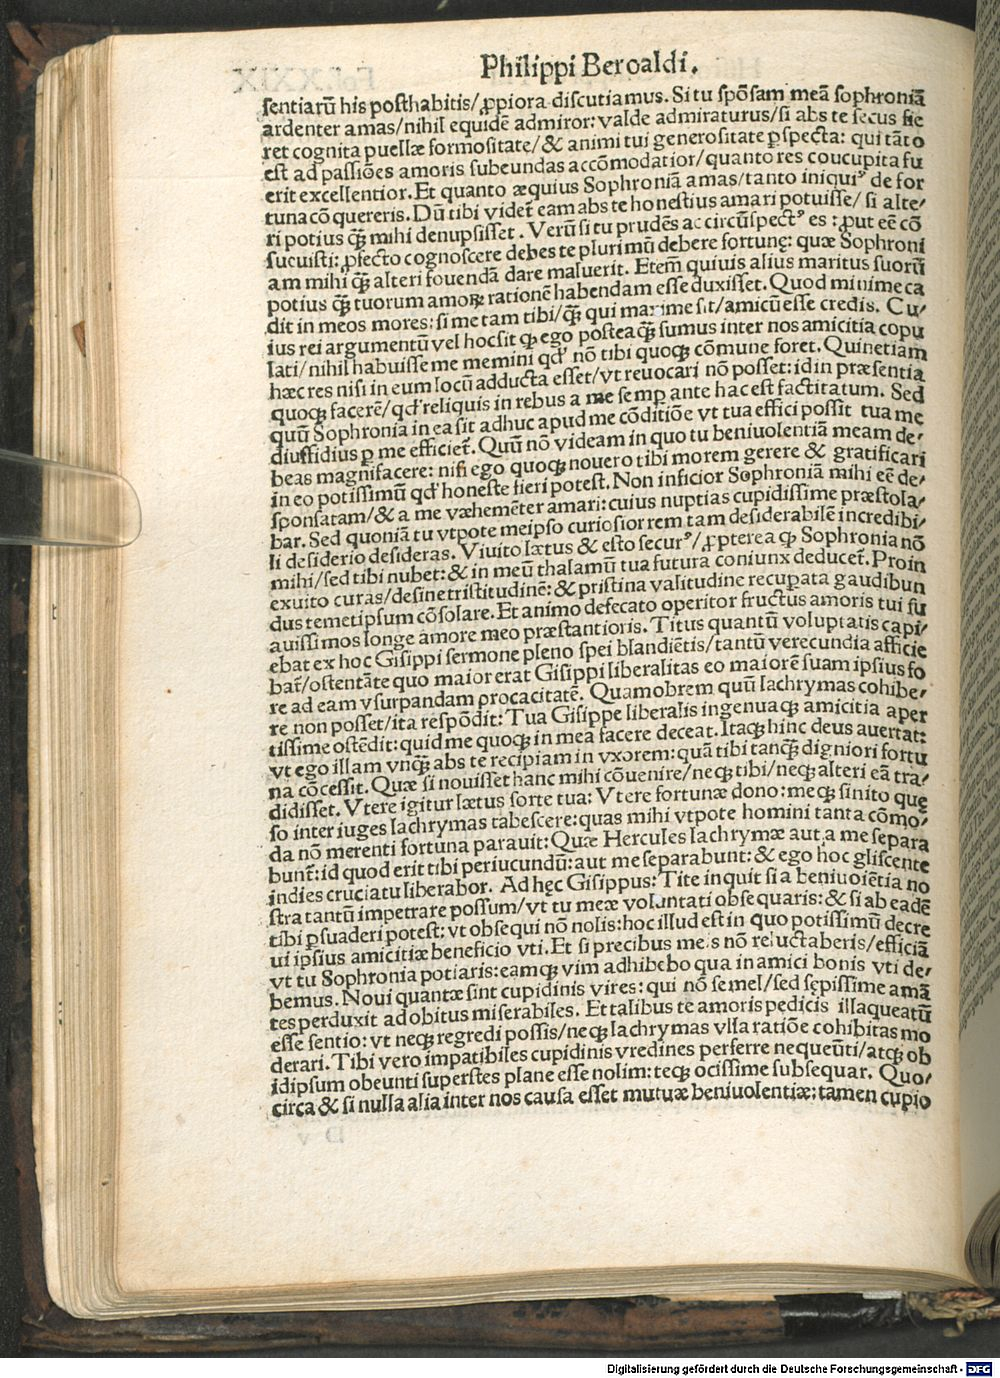 Philippi Beroaldi.
sentiarū his posthabitis/ ꝓpiora discutiamus. Si tu spōsam meā sophroniā
ardenter amas/nihil equidē admiror: valde admiraturus/si abs te secus fie
ret cognita puellæ formositate/& animi tui generositate ꝑspecta: qui tāto
est ad passiōes amoris subeundas accōmodatior/quanto res coucupita fu
erit excellentior. Et quanto æquius Sophroniā amas/tanto iniquiꝰ de for
tuna cō quereris. Dū tibi videt̄ eam abs te honestius amari potuisse/ si alte/
ri potius qꝫ̄ mihi denupsisset. Verū si tu prudēs ac circūspectꝰ es : ꝓut eē cō
sucuisti: ꝓfecto cognoscere debes te plurimū debere fortunę: quæ Sophroni
am mihi qꝫ̄ alteri fouendā dare maluerit. Etem̄ quiuis alius maritus suorū
potius qꝫ̄ tuorum amoꝝ rationē habendam esse duxisset. Quod minime ca
dit in meos mores: si me tam tibi/qꝫ̄ qui maxime sit/amicū esse credis. Cu/
ius rei argumentū vel hoc sit ꝙ ego posteaqꝫ̄ sumus inter nos amicitia copu
lati/nihil habuisse me memini qđ nō tibi quoqꝫ cōmune foret. Quinetiam
hæc res nisi in eum locū adducta esset/vt reuocari nō posset: id in præsentia
quoqꝫ facerē/qđ reliquis in rebus a me semꝑ ante hac est factitatum. Sed
quū Sophronia in ea sit adhuc apud me cōditiōe vt tua effici possit tua me
diusfidius ꝑ me efficiet̄. Quū nō videam in quo tu beniuolentiā meam de/
beas magnifacere: nisi ego quoqꝫ nouero tibi morem gerere & gratificari
in eo potissimū qđ honeste fieri potest. Non inficior Sophroniā mihi eē de/
sponsatam/& a me væhemēter amari: cuius nuptias cupidissime præstola/
bar. Sed quoniā tu vtpote meipso curiosior rem tam desiderabilē incredibi/
li desiderio desideras. Viuito lætus & esto securꝰ/ ꝓpterea ꝙ Sophronia nō
mihi/sed tibi nubet: & in meū thalamū tua futura coniunx deducet̄. Proin
exuito curas/desine tristitudinē: & pristina valitudine recuꝑata gaudibun
dus temetipsum cōsolare. Et animo defecato operitor fructus amoris tui su
auissimos longe amore meo præstantioris. Titus quantū voluptatis capi/
ebat ex hoc Gisippi sermone pleno spei blandiētis/tantū verecundia afficie
bat̄/ostentāte quo maior erat Gisippi liberalitas eo maiorē suam ipsius fo
re ad eam vsurpandam procacitatē. Quamobrem quū lachrymas cohibe/
re non posset/ita respōdit: Tua Gisippe liberalis ingenuaqꝫ amicitia aper
tissime ostēdit: quid me quoqꝫ in mea facere deceat. Itaqꝫ hinc deus auertat:
vt ego illam vnqꝫ̄ abs te recipiam in vxorem: quā tibi tanqꝫ̄ digniori fortu
na cōcessit. Quæ si nouisset hanc mihi cōuenire/neqꝫ tibi/neqꝫ alteri eā tra/
didisset. Vtere igitur lætus sorte tua: Vtere fortunæ dono: meqꝫ sinito quę
so inter iuges lachrymas tabescere: quas mihi vtpote homini tanta cōmo/
da nō merenti fortuna parauit: Quæ Hercules lachrymæ aut a me separa
bunt̄: id quod erit tibi periucundū: aut me separabunt: & ego hoc gliscente
indies cruciatu liberabor. Ad hęc Gisippus: Tite inquit si a beniuolētia no
stra tantū impetrare possum/vt tu meæ voluntati obsequaris: & si ab eadē
tibi ꝑsuaderi potest: vt obsequi nō nolis: hoc illud est in quo potissimū decre
ui ipsius amicitiæ beneficio vti. Et si precibus meis nō reluctaberis/efficiā
vt tu Sophronia potiaris: eamqꝫ vim adhibebo qua in amici bonis vti de/
bemus. Noui quantæ sint cupidinis vires: qui nō semel/sed sępissime amā
tes perduxit ad obitus miserabiles. Et talibus te amoris pedicis illaqueatū
esse sentio: vt neqꝫ regredi possis/neqꝫ lachrymas vlla ratiōe cohibitas mo
derari. Tibi vero impatibiles cupidinis vredines perferre nequeūti/atqꝫ ob
idipsum obeunti superstes plane esse nolim: teqꝫ ocissime subsequar. Quo/
circa & si nulla alia inter nos causa esset mutuæ beniuolentiæ: tamen cupio
Digitalisierung gefördert durch die Deutsche Forschungsgemeinschaft - DFG